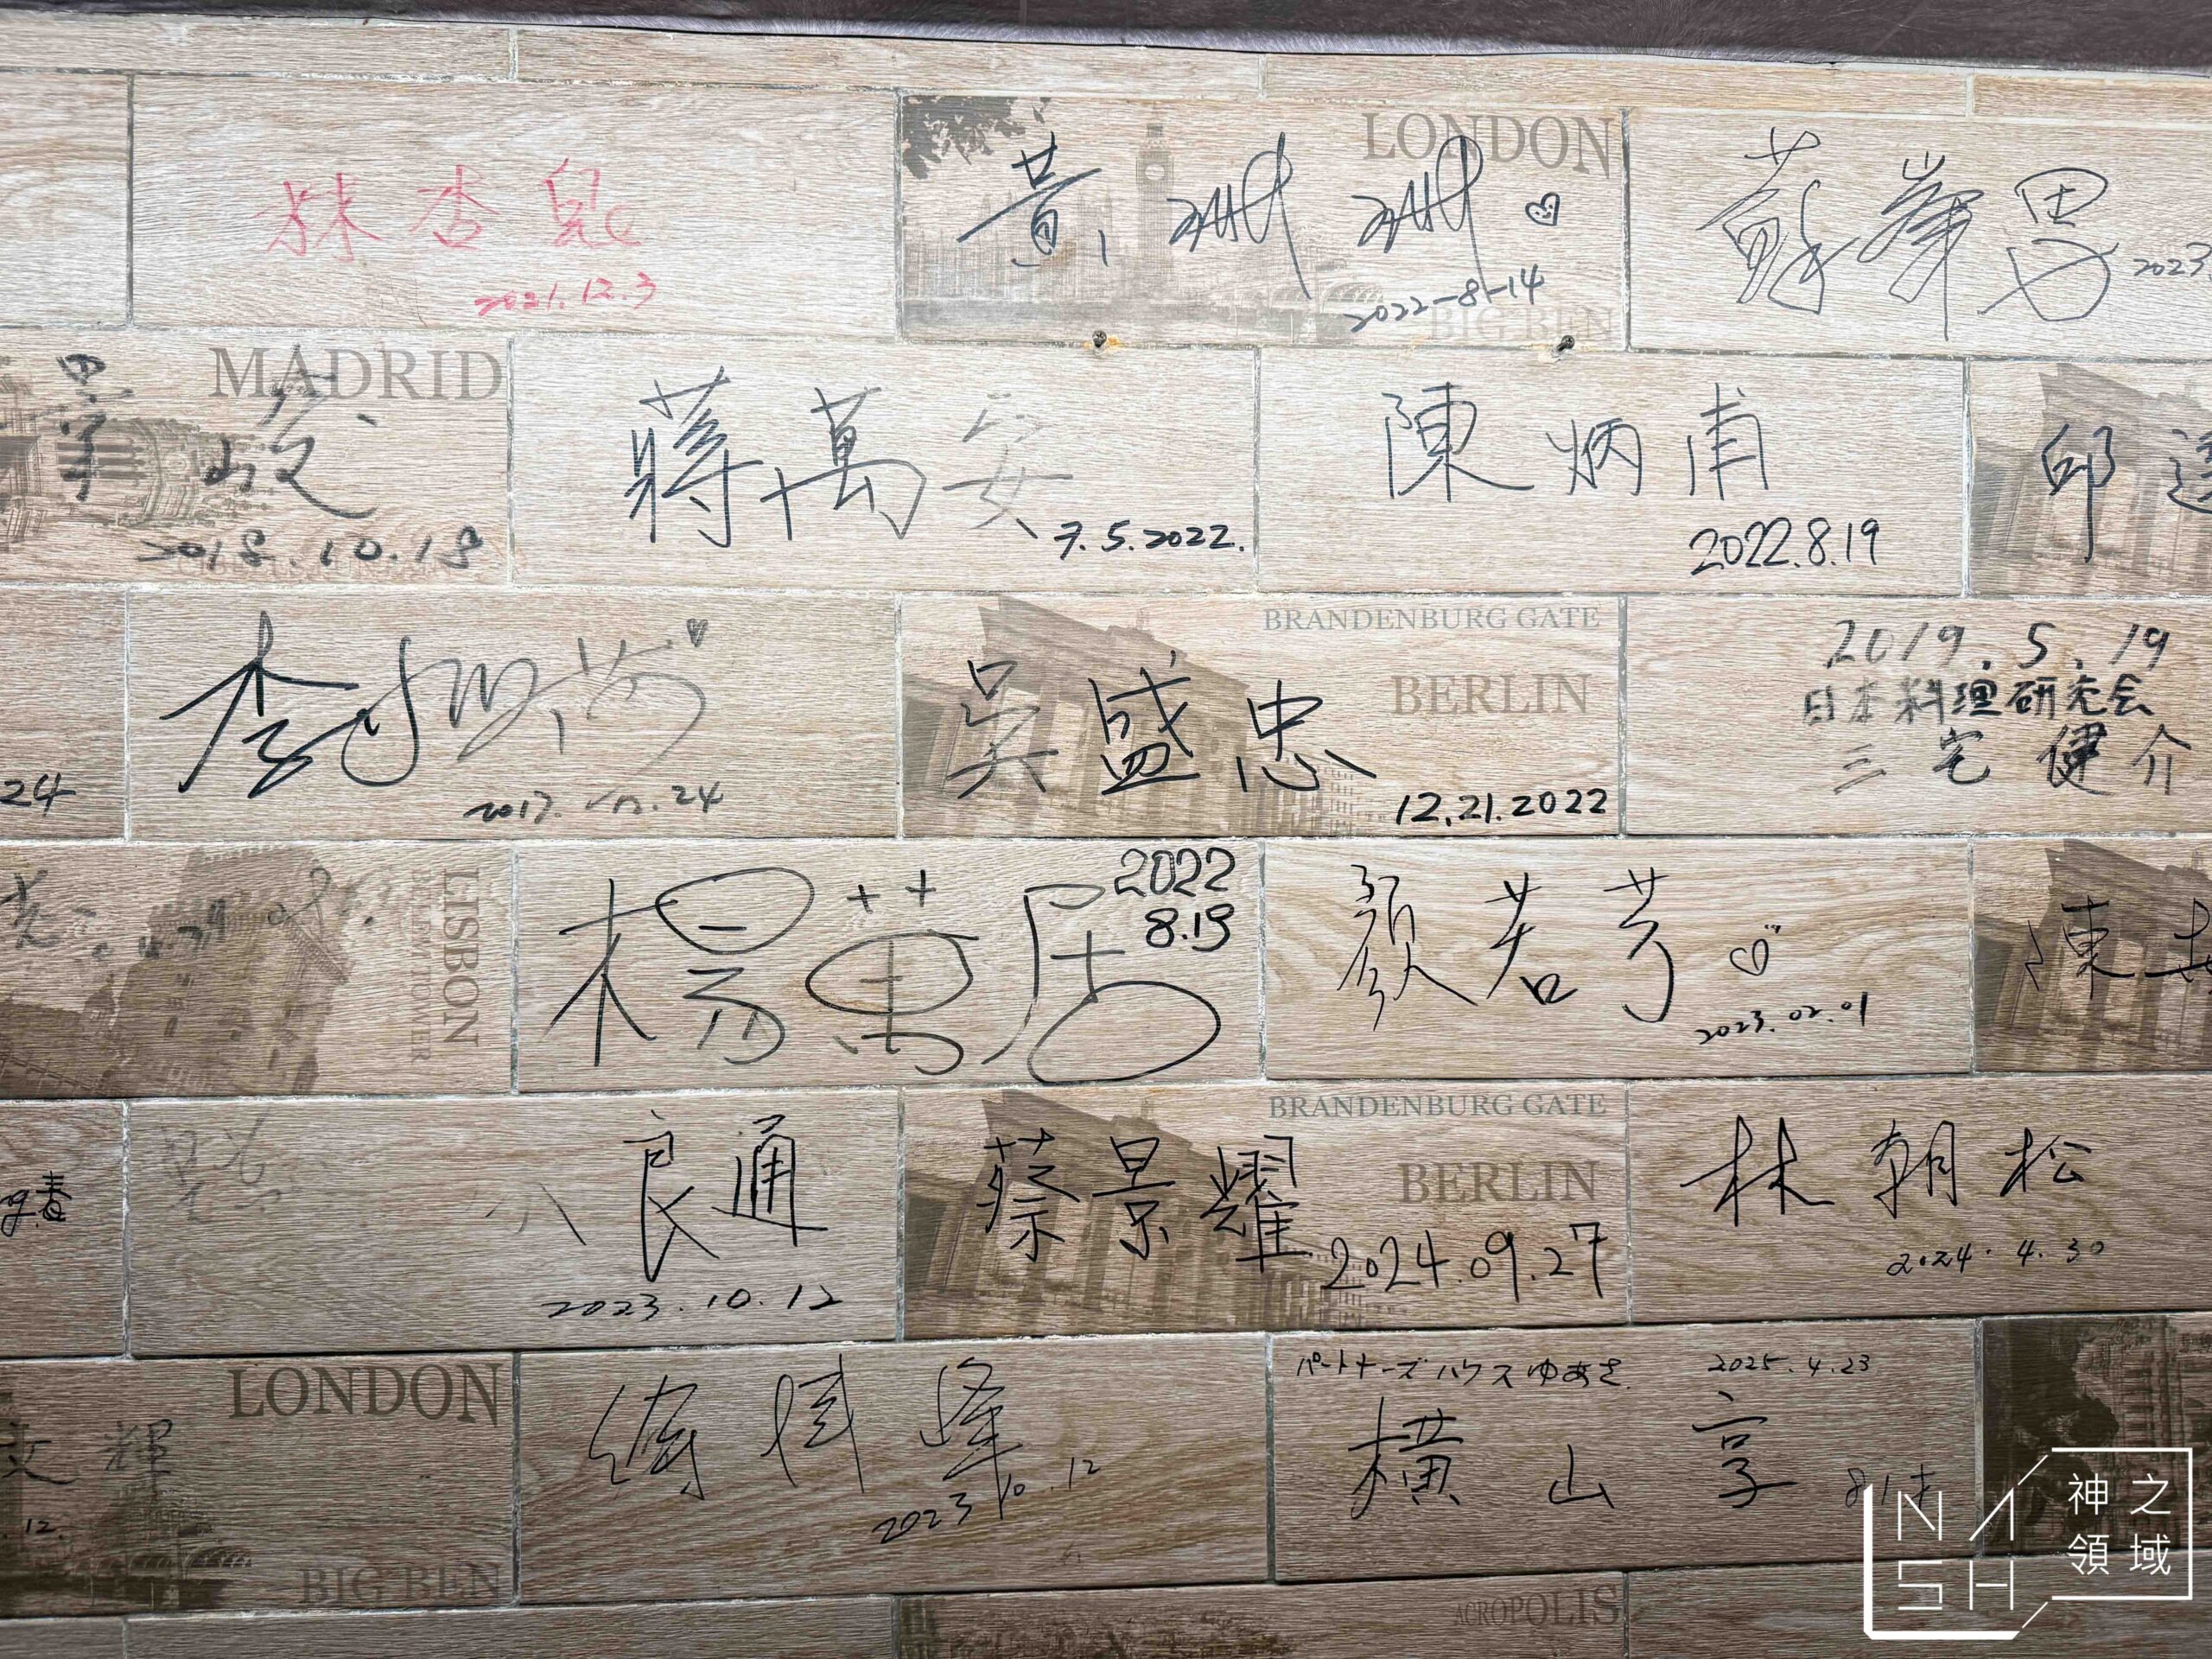 LONDON
林杏兒
2021.12.3
黃珊珊
2022-8-14
BIG BEN
蘇峯男
2023.
MADRID
2018.10.18
蔣萬安
7.5.2022.
陳炳甫
2022.8.19
邱
24
李
2017. 24
BRANDENBURG GATE
BERLIN
吳盛忠
12.21.2022
2019.5.19
日本料理研究会
三宅健介
LISBON
BELEM TOWER
楊萬居
2022
8.19
顏若芳
2023.02.01
陳
春
良通
2023.10.12
BRANDENBURG GATE
BERLIN
蔡景耀
2024.09.27
林朝松
2024.4.30
LONDON
文輝
.12.
BIG BEN
峰
2023 10.12
パートナーズハウスゆあさ 2025.4.23
横山享 81才
ACROPOLIS
NASH
神之
領域